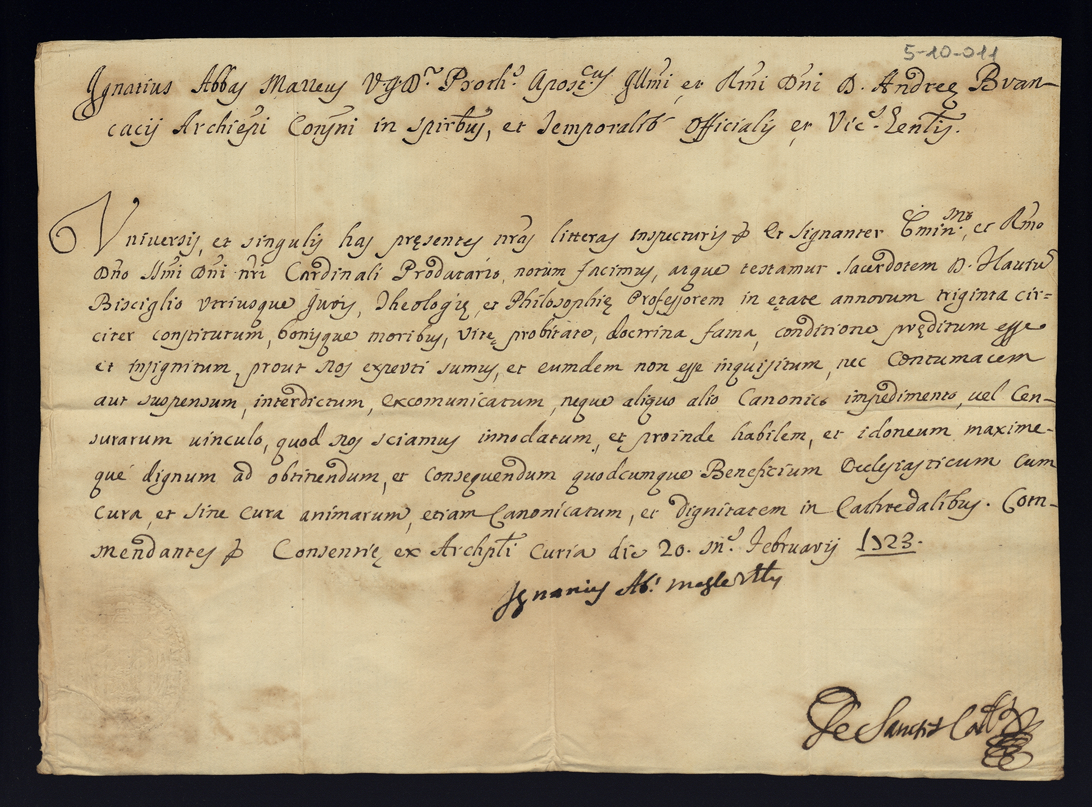 5-10-011
Ignatius Abbas Matteus V.J.D.r Proth.s Apost.cus Ill͂mi et R͂mi D͂ni D. Andreę Bran-
cacij Archie͂pi Cons͂ni in spir͂bus, et Temporalib Officialis et Vic.s Gen͂lis.
Vniversis, et singulis has pręsentes n͂ras litteras inspecturis & et signanter Emin.mo, et R͂mo
D͂no Ill͂mi D͂ni n͂ri Cardinali Prodatario, notum facimus, atque testamur sacerdotem D.
Bisciglio Vtriusque Juris, Theologię, et Philosophię Professorem in ętate annorum triginta cir=
citer constitutum, bonisque moribus, vitę probitate, doctrina fama, conditione pręditum esse
et insignitum, prout nos experti sumus, et eumdem non esse inquisitum, nec Contumacem
aut suspensum, interdictum, excomunicatum, neque aliquo alio Canonico impedimento, vel Cen-
surarum vinculo, quod nos sciamus innodatum, et proinde habilem, et idoneum maxime-
què dignum ad obtinendum, et consequendum quodcumque Beneficium Ecclesiasticum cum
cura, et sine cura animarum, etiam Canonicatum, et dignitatem in Cathredalibus. Com-
mendantes & Consentię ex Archp͂li Curia die 20. m.s Februarij 1723.
Ignatius Ab.s
De Sanctis